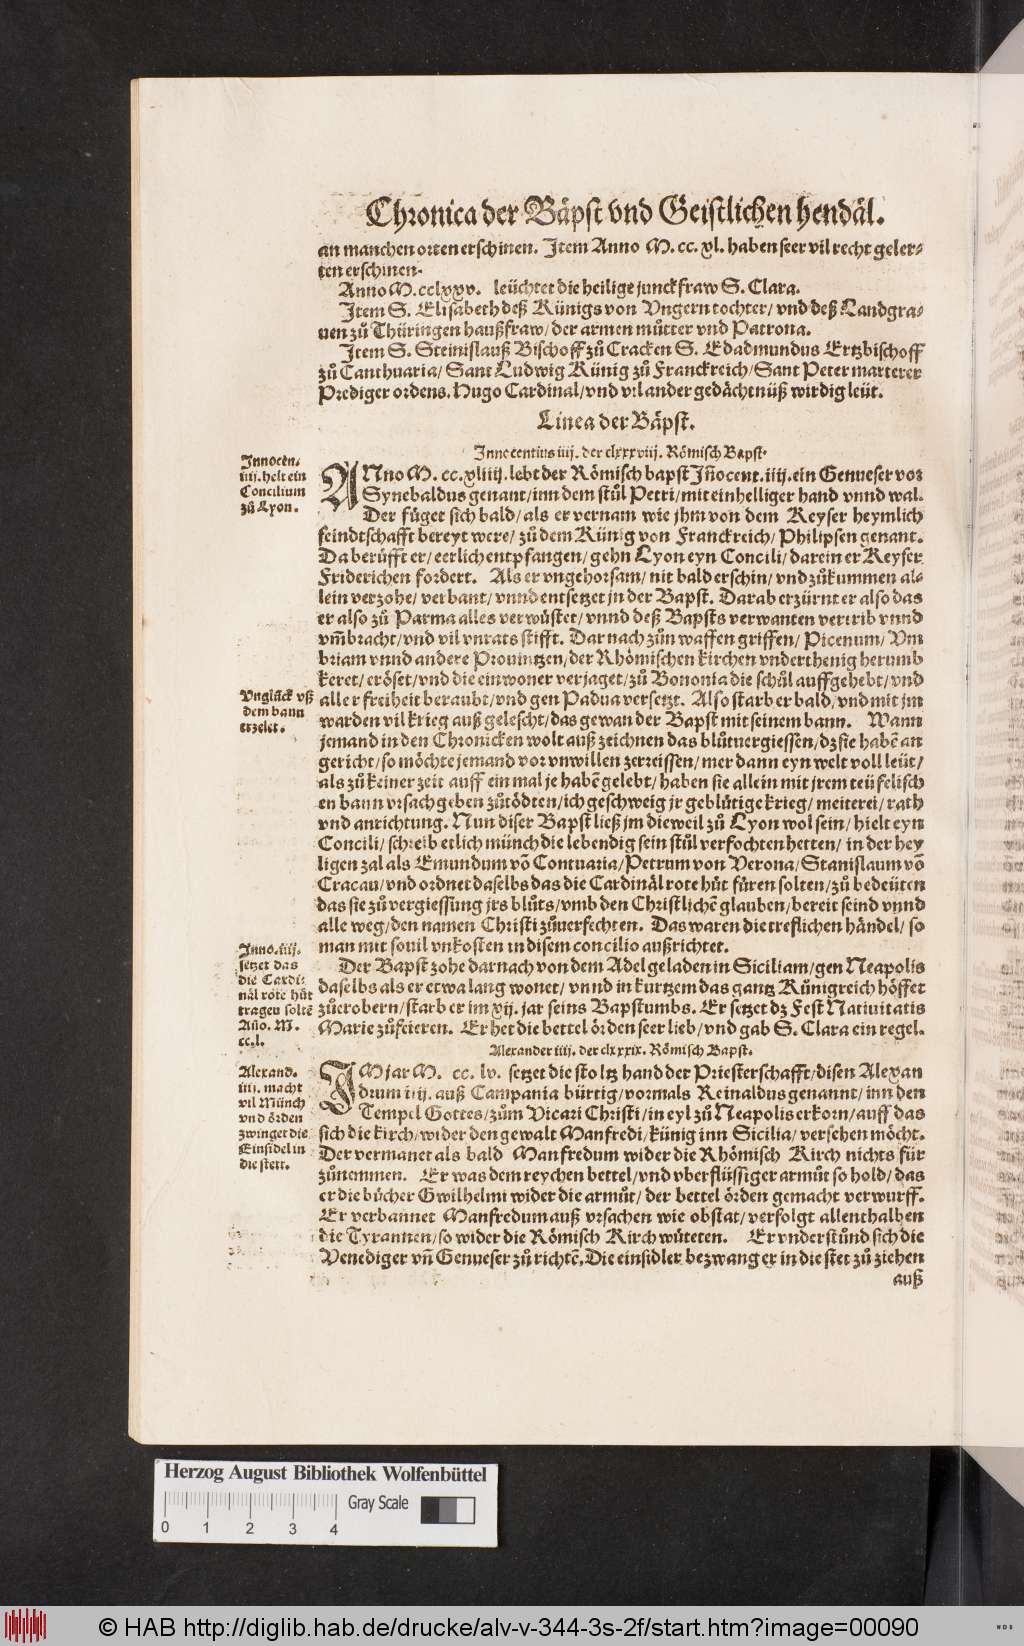 Chronica der Bäpst vnd Geistlichen hendäl.
an manchen orten erschinen. Item Anno M. cc. xl. haben seer vil recht geler-
ten erschinen.
Anno M. cclxxv. leüchtet die heilige junckfraw S. Clara.
Item S. Elisabeth deß Künigs von Vngern tochter/ vnd deß Landgra-
uen zů Thüringen haußfraw/ der armen můtter vnd Patrona.
Item S. Steinislauß Bischoff zů Cracken S. Edadmundus Ertzbischoff
zů Canthuaria/ Sant Ludwig Künig zů Franckreich/ Sant Peter marterer
Prediger ordens. Hugo Cardinal/ vnd vil ander gedächtnüß wirdig leüt.
Linea der Bäpst.
Innocentius iiij. der clxxxviij. Römisch Bapst.
Innocen.
iiij. helt ein
Concilium
zů Lyon.
ANno M. cc. xliiij. lebt der Römisch bapst Iñocent. iiij. ein Genueser vor
Synebaldus genant/ inn dem stůl Petri/ mit einhelliger hand vnnd wal.
Der füget sich bald/ als er vernam wie jhm von dem Keyser heymlich
feindtschafft bereyt were/ zů dem Künig von Franckreich/ Philipsen genant.
Da berüfft er/ eerlich entpfangen/ gehn Lyon eyn Concili/ darein er Keyser
Friderichen fordert. Als er vngehorsam/ nit bald erschin/ vnd zůkummen al-
lein verzohe/ verbant/ vnnd entsetzet jn der Bapst. Darab erzürnt er also das
er also zů Parma alles verwüstet/ vnnd deß Bapsts verwanten vertrib vnnd
vm̃bracht/ vnd vil vnrats stifft. Darnach zůn waffen griffen/ Picenum/ Vm
briam vnnd andere Prouintzen/ der Rhömischen kirchen vnderthenig herumb
keret/ eröset/ vnd die einwoner verjaget/ zů Bononia die schůl auffgehebt/ vnd
Vnglück vß
dem bann
erzelet.
aller freiheit beraubt/ vnd gen Padua versetzt. Also starb er bald/ vnd mit jm
warden vil krieg außgelescht/ das gewan der Bapst mit seinem bann. Wann
jemand in den Chronicken wolt außzeichnen das blůtuergiessen/ dz sie habẽ an
gericht/ so möchte jemand vor vnwillen zerreissen/ mer dann eyn welt voll leüt/
als zů keiner zeit auff ein mal je habẽ gelebt/ haben sie allein mit jrem teüfelisch
en bann vrsach geben zů tödten/ ich geschweig jr geblůtige krieg/ meiterei/ rath
vnd anrichtung. Nun diser Bapst ließ jm dieweil zů Lyon wol sein/ hielt eyn
Concili/ schreib etlich münch die lebendig sein stůl verfochten hetten/ in der hey
ligen zal als Emundum võ Contuaria/ Petrum von Verona/ Stanislaum võ
Cracau/ vnd ordnet daselbs das die Cardinäl rote hůt füren solten/ zů bedeüten
das sie zů vergiessung jrs blůts/ vmb den Christlichẽ glauben/ bereit seind vnnd
alle weg/ den namen Christi zůuerfechten. Das waren die treflichen händel/ so
man mit souil vnkosten in disem concilio außrichtet.
Inno. iiij.
setzet das
die Cardi-
näl rote hüt
tragen soltẽ
Año. M.
cc. l.
Der Bapst zohe darnach von dem Adel geladen in Siciliam/ gen Neapolis
daselbs als er etwa lang wonet/ vnnd in kurtzem das gantz Künigreich höffet
zůerobern/ starb er im xij. jar seins Bapstumbs. Er setzet dz Fest Natiuitatis
Marie zůfeieren. Er het die bettel örden seer lieb/ vnd gab S. Clara ein regel.
Alexander iiij. der clxxxix. Römisch Bapst.
Alexand.
iiij. macht
vil Münch
vnd örden
zwinget die
Einsidel in
die stett.
IM jar M. cc. lv. setzet die stoltz hand der Priesterschafft/ disen Alexan
drum iiij. auß Campania bürtig/ vormals Reinaldus genannt/ inn den
Tempel Gottes/ zům Vicari Christi/ in eyl zů Neapolis erkorn/ auff das
sich die kirch/ wider den gewalt Manfredi/ künig inn Sicilia/ versehen möcht.
Der vermanet als bald Manfredum wider die Rhömisch Kirch nichts für
zůnemmen. Er was dem reychen bettel/ vnd vberflüssiger armůt so hold/ das
er die bücher Gwilhelmi wider die armůt/ der bettel örden gemacht verwurff.
Er verbannet Manfredum auß vrsachen wie obstat/ verfolgt allenthalben
die Tyrannen/ so wider die Römisch Kirch wůteten. Er vnderstůnd sich die
Venediger vñ Genueser zů richtẽ. Die einsidler bezwang er in die stet zů ziehen
auß
Herzog August Bibliothek Wolfenbüttel
Gray Scale
0 1 2 3 4
© HAB http://diglib.hab.de/drucke/alv-v-344-3s-2f/start.htm?image=00090